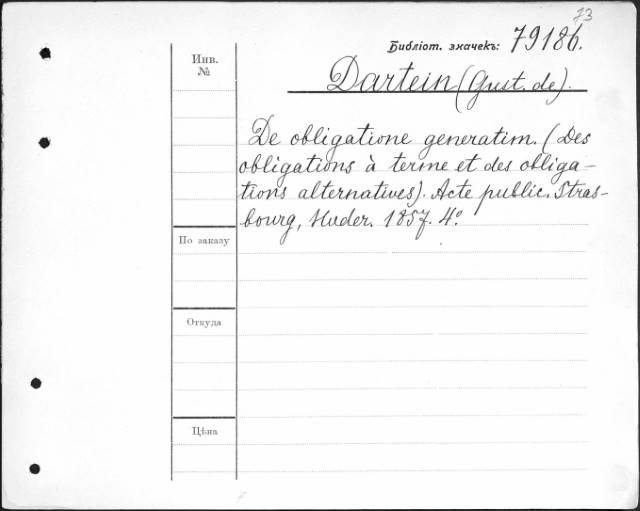 73
Библіот. значекъ: 79186.
Инв.
№
Dartein (Gust. de).
De obligatione generatim. (Des
obligations à terme et des obliga-
tions alternatives). Acte public. Stras-
bourg, Huder. 1857. 4º.
По заказу
Откуда
Цѣна